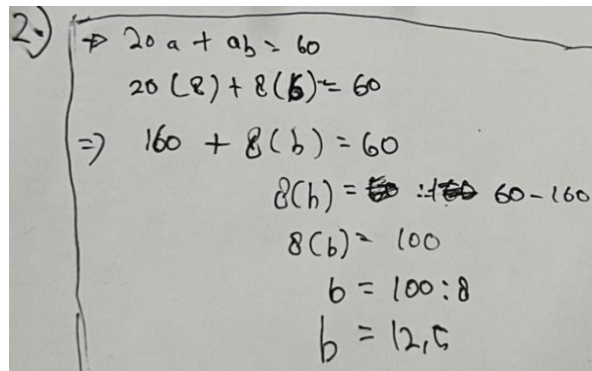 2.) => 20 a + ab = 60
20 (8) + 8(b) = 60
=> 160 + 8(b) = 60
8(b) = 60 - 160
8(b) = 100
b = 100 : 8
b = 12,5